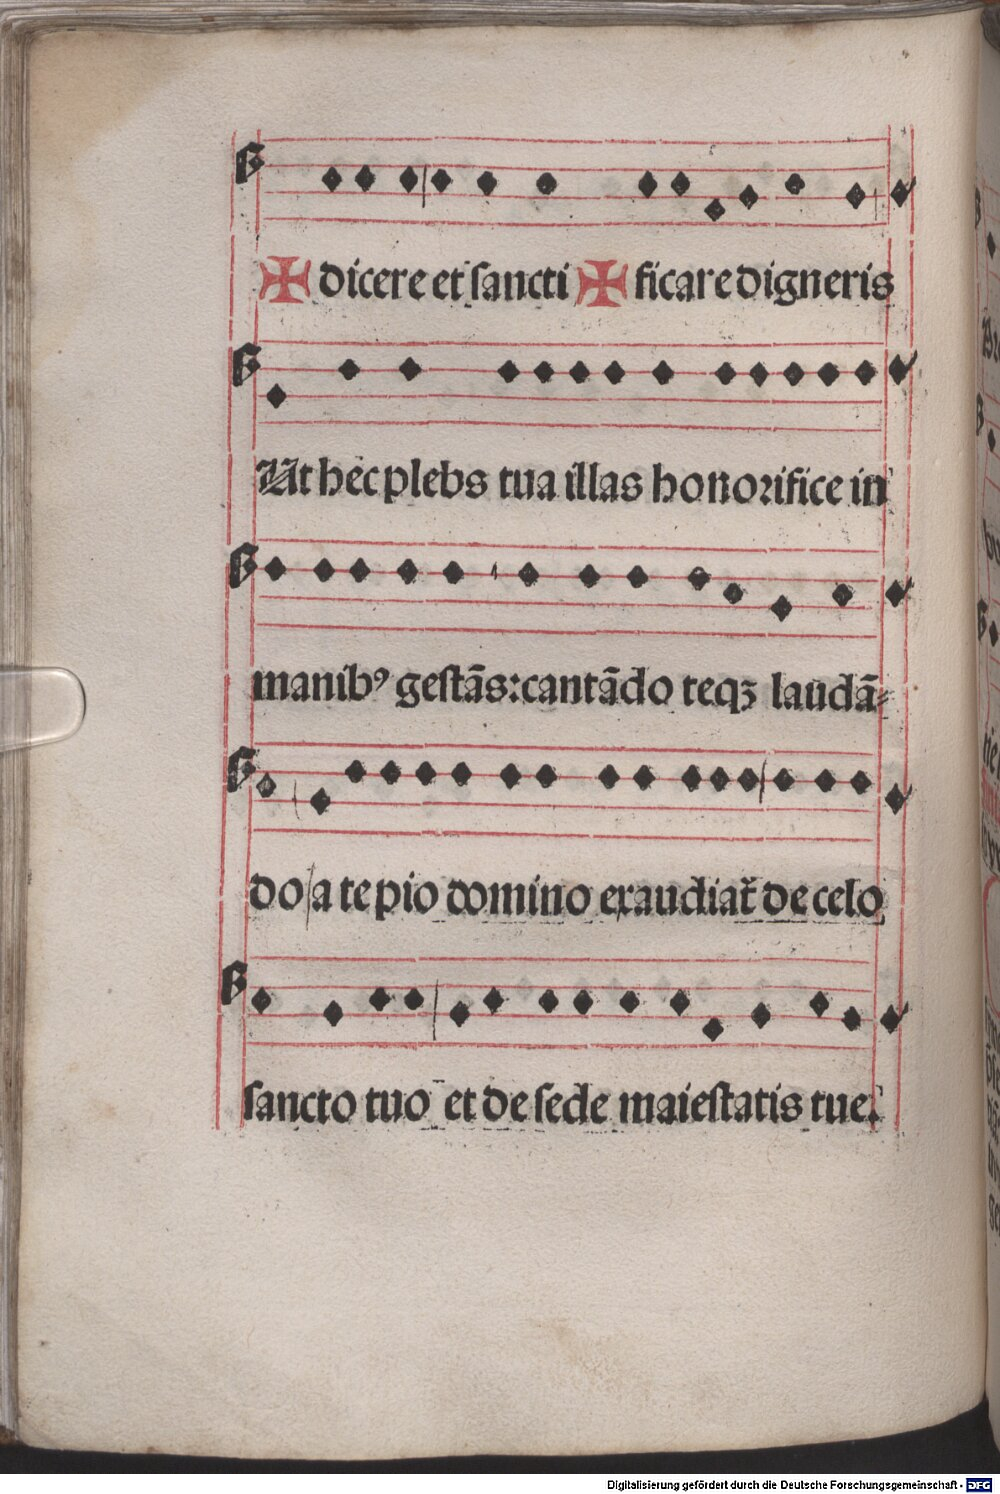 ✠ dicere et sancti ✠ ficare digneris
Ut hec plebs tua illas honorifice in
manibꝰ gestãs: cantãdo teqꝫ laudã⸗
do a te pio domino exaudiat᷑ de celo
sancto tuo et de sede maiestatis tue.
Digitalisierung gefördert durch die Deutsche Forschungsgemeinschaft - DFG